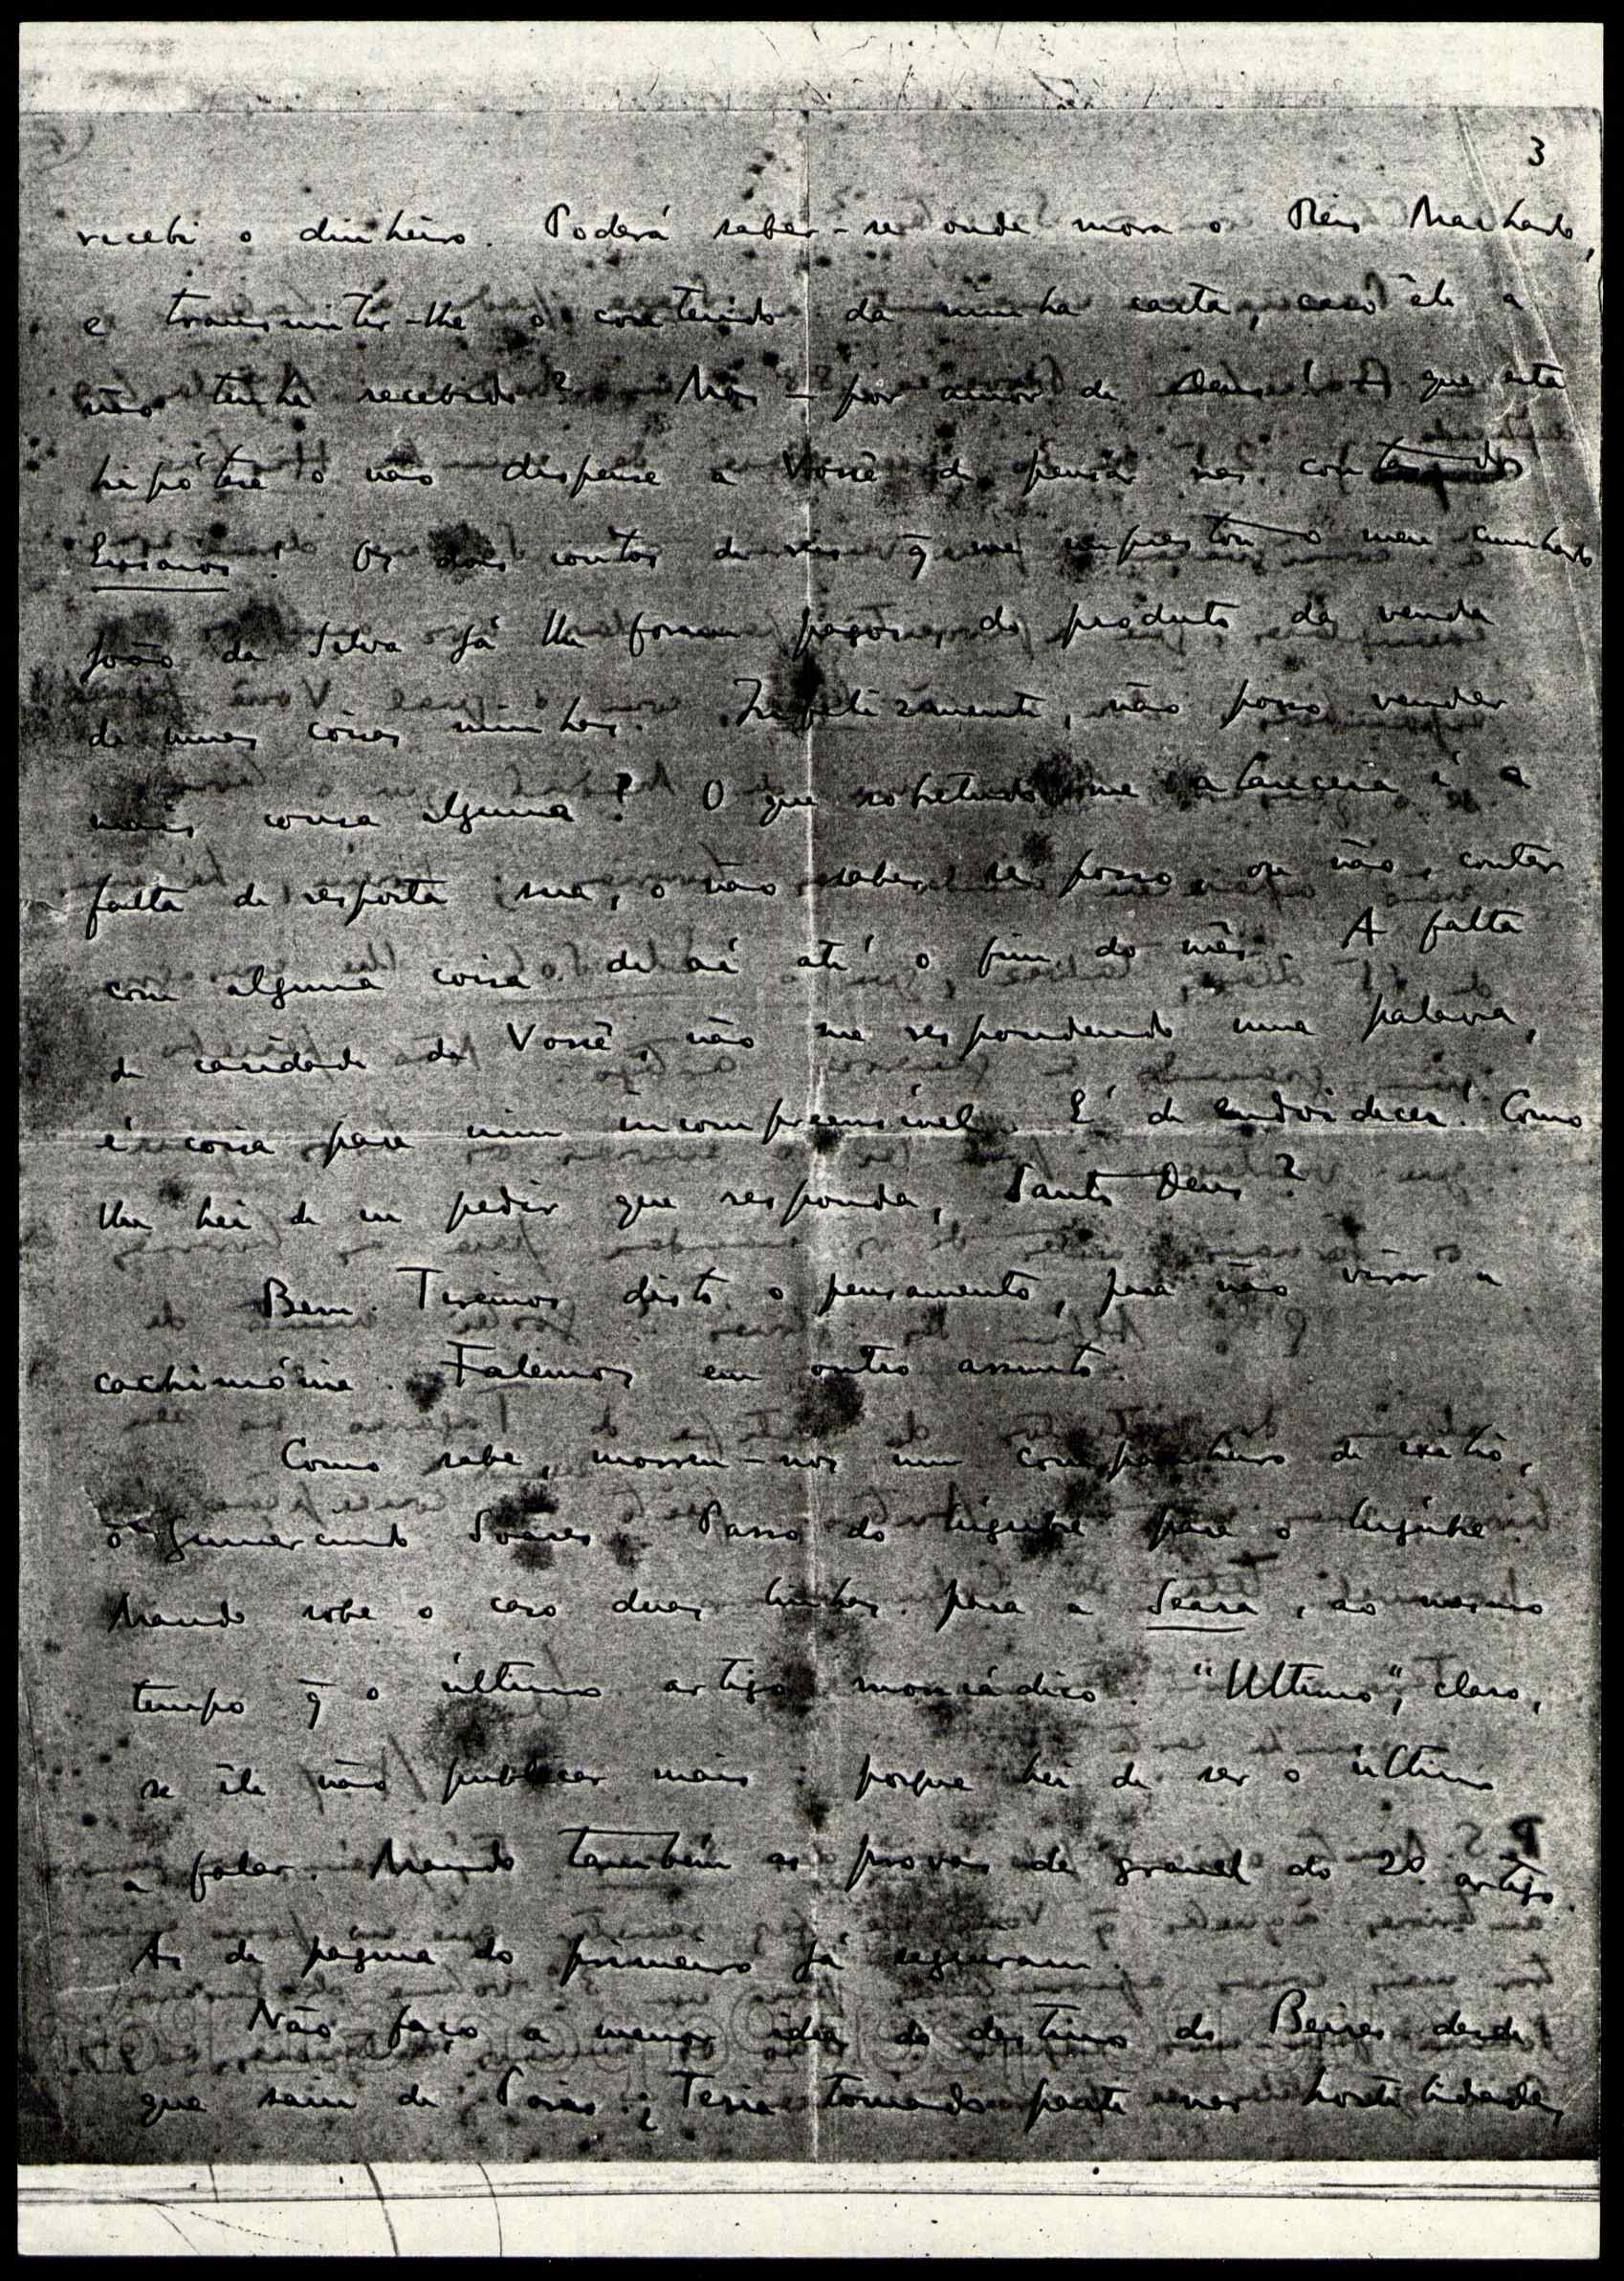 3
recebi o dinheiro. Poderá saber-se onde mora o Réis Machado,
e transmitir-lhe o conteúdo da minha carta, caso êle a
não tenha recebido? Mas – por amor de Deus! – que esta
hipótese o não dispense a Você de pensar nos
Ensaios! Os dois contos de reis q̃ me emprestou o meu cunhado
João da Silva já lhe foram pagos, do produto da venda
de umas coisas minhas. Infelizmente, não posso vender
mais coisa alguma! O que sobretudo me é a
falta de resposta sua, o não saber se posso, ou não, contar
com alguma coisa de aí até o fim do mês. A falta
de caridade de Você, não me respondendo uma palavra,
é coisa para mim incompreensível. É de endoidecer! Como
lhe hei de eu pedir que responda, Santo Deus?
Bem. Tiremos disto o pensamento, para não virar a
cachimónia. Falemos em outro assunto.
Como sabe, morreu-nos um companheiro de exílio,
o Gumercindo Soares. Passo do lúgubre para o lúgubre.
Mando sobre o caso duas linhas para a Seara, ao mesmo
tempo q̃ o último artigo moniádico. "Ultimo", claro,
se êle não publicar mais: porque hei de ser o último
a falar. Mando também as provas de granel do 2º artigo.
As de página do primeiro já seguiram.
Não faço a menor idea do destino do Beires desde
que saiu de Paris. ¿Teria tomado parte nas hostilidades,